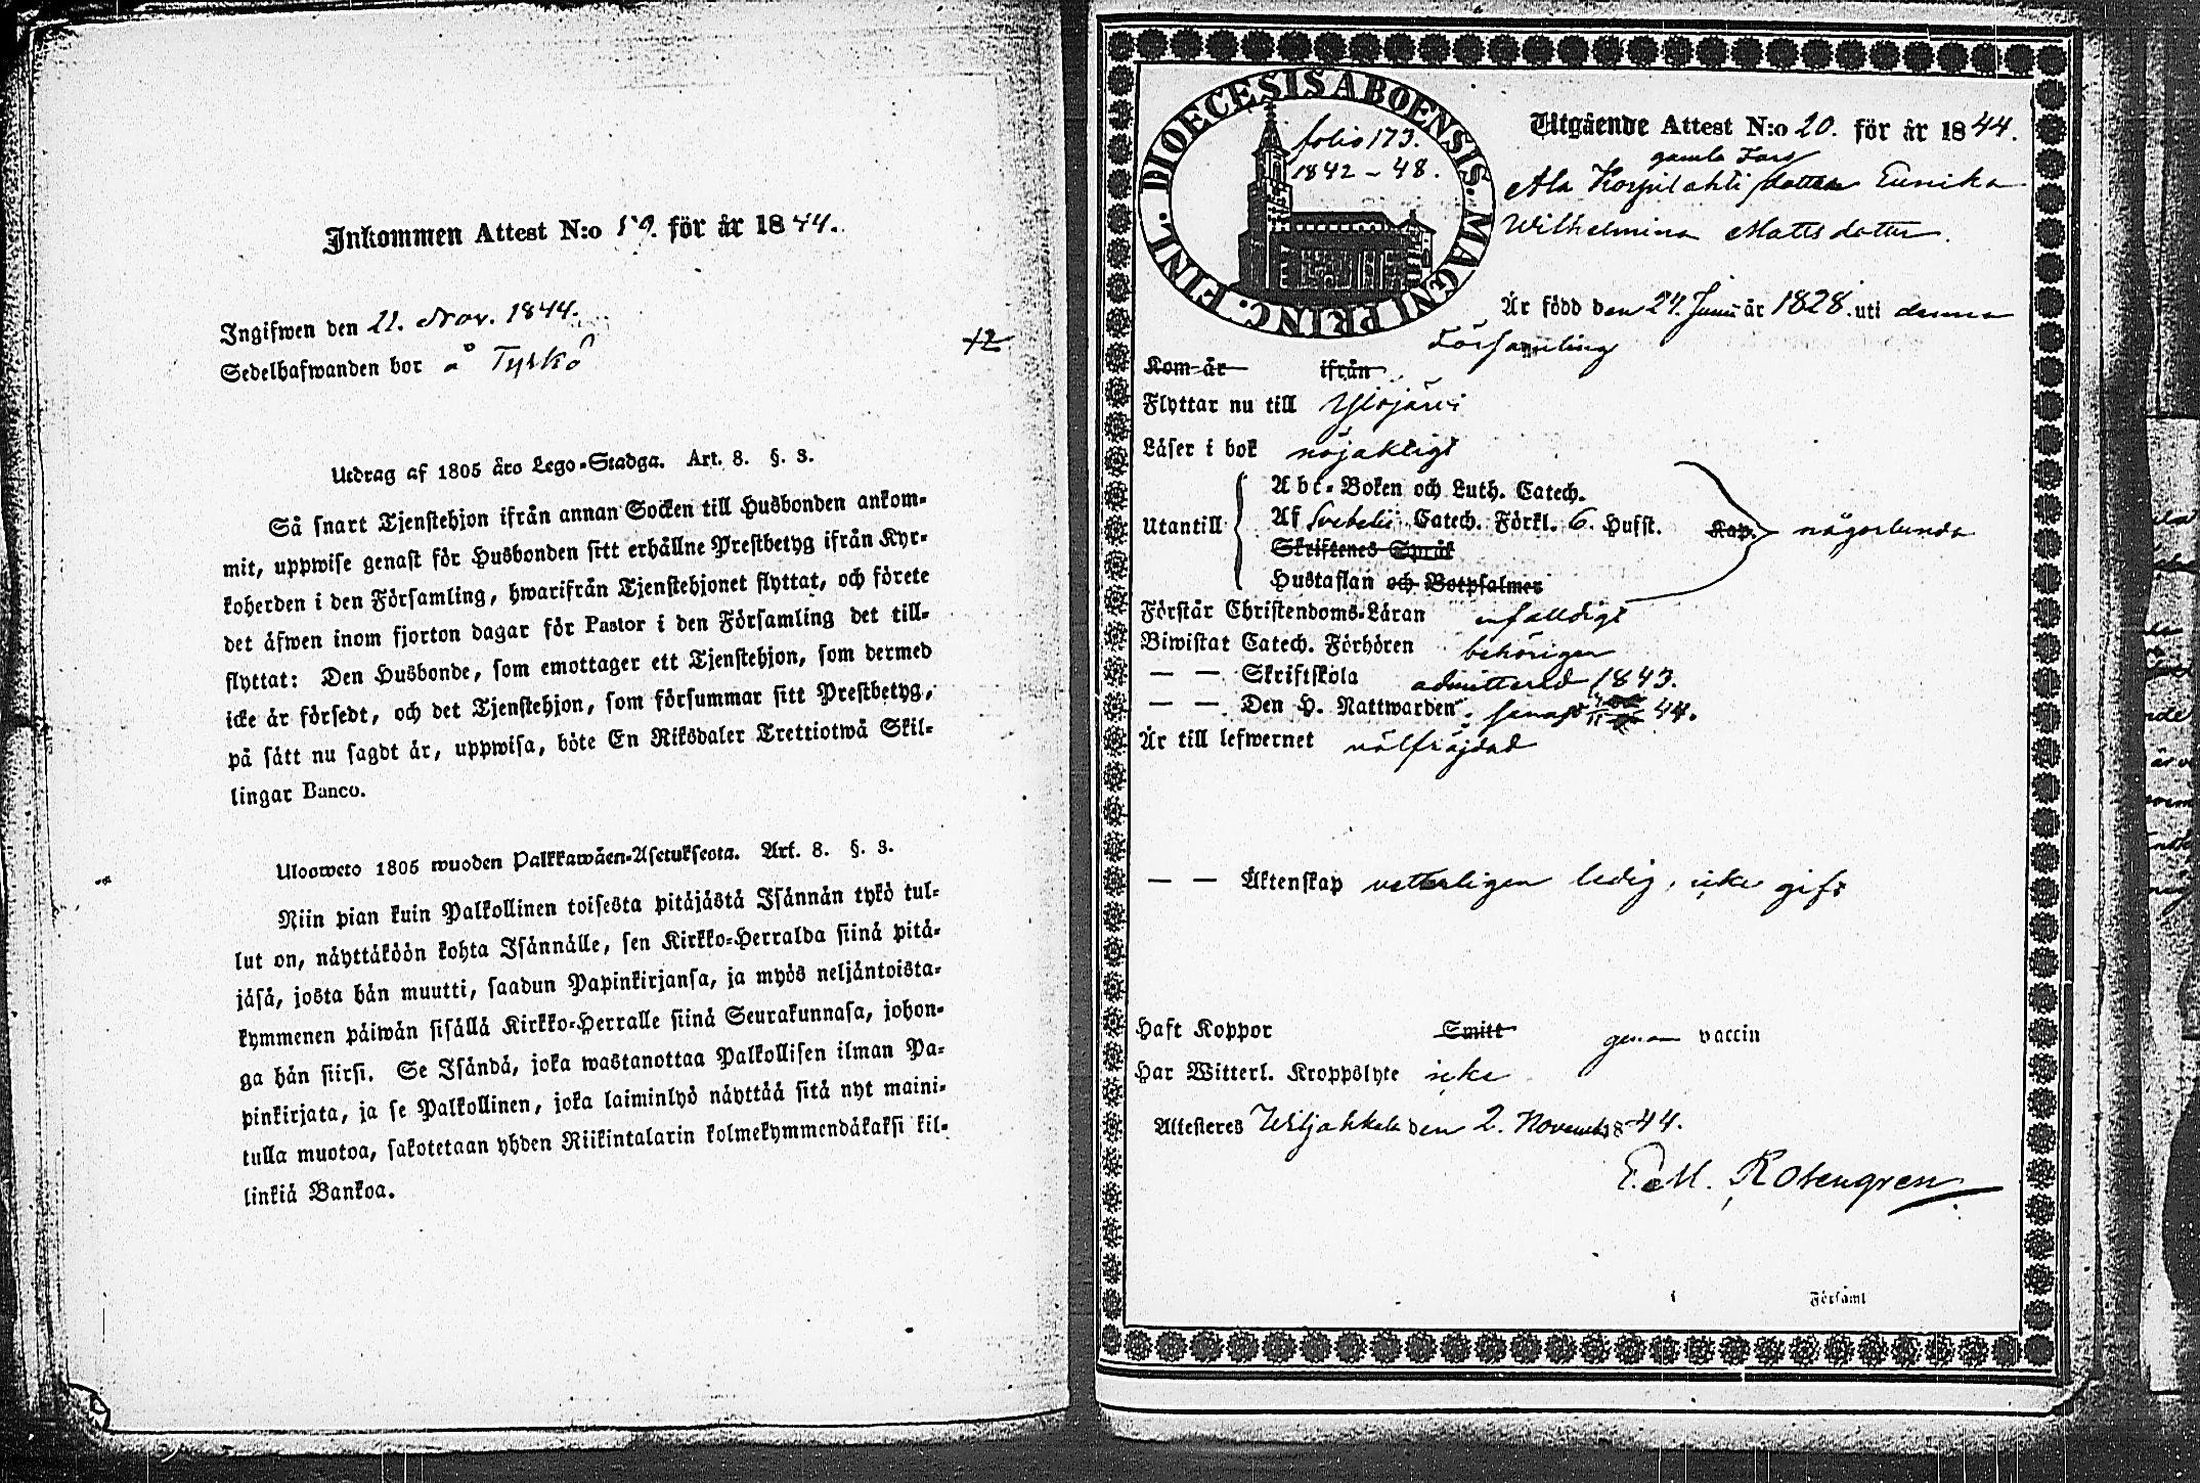 Inkommen Attest N:o 19. för år 1844.
Ingifwen den 21. Nov. 1844.
Sedelhafwanden bor å Tyrkö
12
Utdrag af 1805 års Lego-Stadga. Art. 8. §. 3.
Så snart Tjenstehjon ifrån annan Socken till Husbonden ankom-
mit, uppwise genast för Husbonden sitt erhållne Prestbetyg ifrån Kyr-
koherden i den Församling, hwarifrån Tjenstehjonet flyttat, och förete
det äfwen inom fjorton dagar för Pastor i den Församling det till-
flyttat: Den Husbonde, som emottager ett Tjenstehjon, som dermed
icke är försedt, och det Tjenstehjon, som försummar sitt Prestbetyg,
på sätt nu sagdt är, uppwisa, böte En Riksdaler Trettiotwå Skil-
lingar Banco.
Uloosweto 1805 wuoden Palkkawäen-Asetuksesta. Art. 8. §. 3.
Niin pian kuin Palkollinen toisesta pitäjästä Isännän tykö tul-
lut on, näyttäköön kohta Isännälle, sen Kirkko-Herralda siinä pitä-
jäsä, josta hän muutti, saadun Papinkirjansa, ja myös neljäntoista-
kymmenen päiwän sisällä Kirkko-Herralle siinä Seurakunnasa, johon-
ga hän siirsi. Se Isändä, joka wastanottaa Palkollisen ilman Pa-
pinkirjata, ja se Palkollinen, joka laiminlyö näyttää sitä nyt maini-
tulla muotoa, sakotetaan yhden Riikintalarin kolmekymmendäkaksi kil-
linkiä Bankoa.
DIOECESIS ABOENSIS. MAGNI PRINC. FINL.
folio 173.
1842-48.
Utgående Attest N:o 20. för år 1844.
gamla Fars
Ala Kospilahti dotter Eunika
Wilhelmina Mattsdotter.
Är född den 24. Junii år 1828. uti denna
Församling
Kom år ifrån
Flyttar nu till Ylöjärvi
Läser i bok nöjakligt
Utantill
Abc-Boken och Luth. Catech.
Af Svebelii Catech. Förkl. 6. Hufst. Kap. någorlunda
Skriftenes Språk
Hustaflan och Botpsalmer
Förstår Christendoms-Läran enfalldigt
Biwistat Catech. Förhören behörigen
— — Skriftskola admitterad 1843.
— — Den H. Nattwarden senast 44.
Är till lefwernet välfräjdad
— — Äktenskap vetterligen ledig, icke gift
Haft Koppor Smitt genom vaccin
Har Witterl. Kroppslyte icke
Attesteres Wiljakkala den 2. November 1844.
E. M. Rosengren
Församl